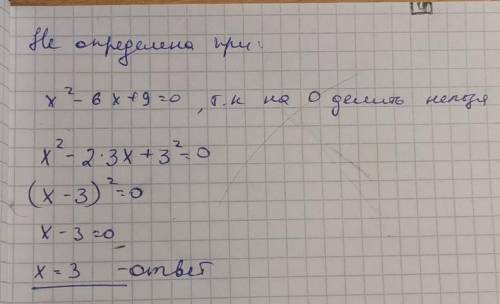 Не определена при:
x² - 6x + 9 = 0, т.к на 0 делить нельзя
x² - 2·3x + 3² = 0
(x - 3)² = 0
x - 3 = 0
x = 3 - ответ